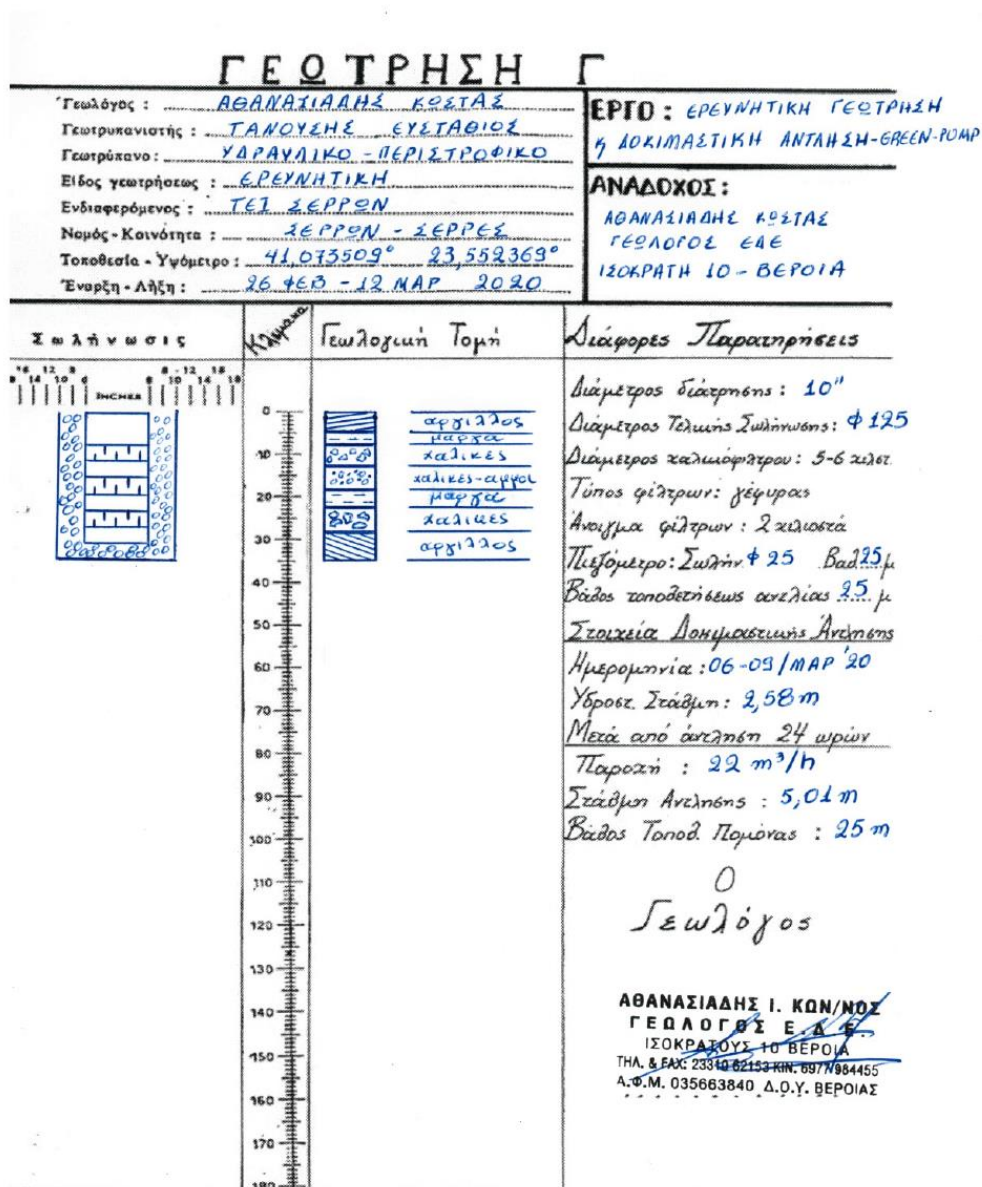 ΓΕΩΤΡΗΣΗ Γ
Γεωλόγος : ΑΘΑΝΑΣΙΑΔΗΣ ΚΩΣΤΑΣ
Γεωτρυπανιστής : ΤΑΝΟΥΣΗΣ ΕΥΣΤΑΘΙΟΣ
Γεωτρύπανο : ΥΔΡΑΥΛΙΚΟ - ΠΕΡΙΣΤΡΟΦΙΚΟ
Είδος γεωτρήσεως : ΕΡΕΥΝΗΤΙΚΗ
Ενδιαφερόμενος : ΤΕΙ ΣΕΡΡΩΝ
Νομός - Κοινότητα : ΣΕΡΡΩΝ - ΣΕΡΡΕΣ
Τοποθεσία - Υψόμετρο : 41,073509° 23,552369°
Έναρξη - Λήξη : 26 ΦΕΒ - 12 ΜΑΡ 2020
ΕΡΓΟ : ΕΡΕΥΝΗΤΙΚΗ ΓΕΩΤΡΗΣΗ
ή ΔΟΚΙΜΑΣΤΙΚΗ ΑΝΤΛΗΣΗ-GREEN-POMP
ΑΝΑΔΟΧΟΣ :
ΑΘΑΝΑΣΙΑΔΗΣ ΚΩΣΤΑΣ
ΓΕΩΛΟΓΟΣ ΕΔΕ
ΙΣΟΚΡΑΤΗ 10 - ΒΕΡΟΙΑ
Σωλήνωσις
16 12 8 8 - 12 16
14 10 6 6 10 14 18
INCHES
Κλίμακα
0
10
20
30
40
50
60
70
80
90
100
110
120
130
140
150
160
170
180
Γεωλογική Τομή
αργιλλος
μαργα
χαλικες
χαλικες-αμμοι
μαργα
χαλικες
αργιλλος
Διάφορες Παρατηρήσεις
Διάμετρος διάτρησης : 10"
Διάμετρος Τελικής Σωλήνωσης : Φ 125
Διάμετρος χαλικόφιλτρου : 5-6 χιλστ.
Τύπος φίλτρων : γέφυρας
Άνοιγμα φίλτρων : 2 χιλιοστά
Πιεζόμετρο : Σωλήν. Φ 25 Βαθ. 25 μ
Βάθος τοποθετήσεως αντλίας 25 μ
Στοιχεία Δοκιμαστικής Άντλησης
Ημερομηνία : 06-09/ΜΑΡ '20
Υδροστ. Στάθμη : 2,58 m
Μετά από άντληση 24 ωρών
Παροχή : 22 m³/h
Στάθμη Αντλησης : 5,01 m
Βάθος Τοποθ. Πομόνας : 25 m
Ο
Γεωλόγος
ΑΘΑΝΑΣΙΑΔΗΣ Ι. ΚΩΝ/ΝΟΣ
ΓΕΩΛΟΓΟΣ Ε.Δ.Ε.
ΙΣΟΚΡΑΤΟΥΣ 10 ΒΕΡΟΙΑ
ΤΗΛ. & FAX: 23310 62153 ΚΙΝ. 6977 984455
Α.Φ.Μ. 035663840 Δ.Ο.Υ. ΒΕΡΟΙΑΣ